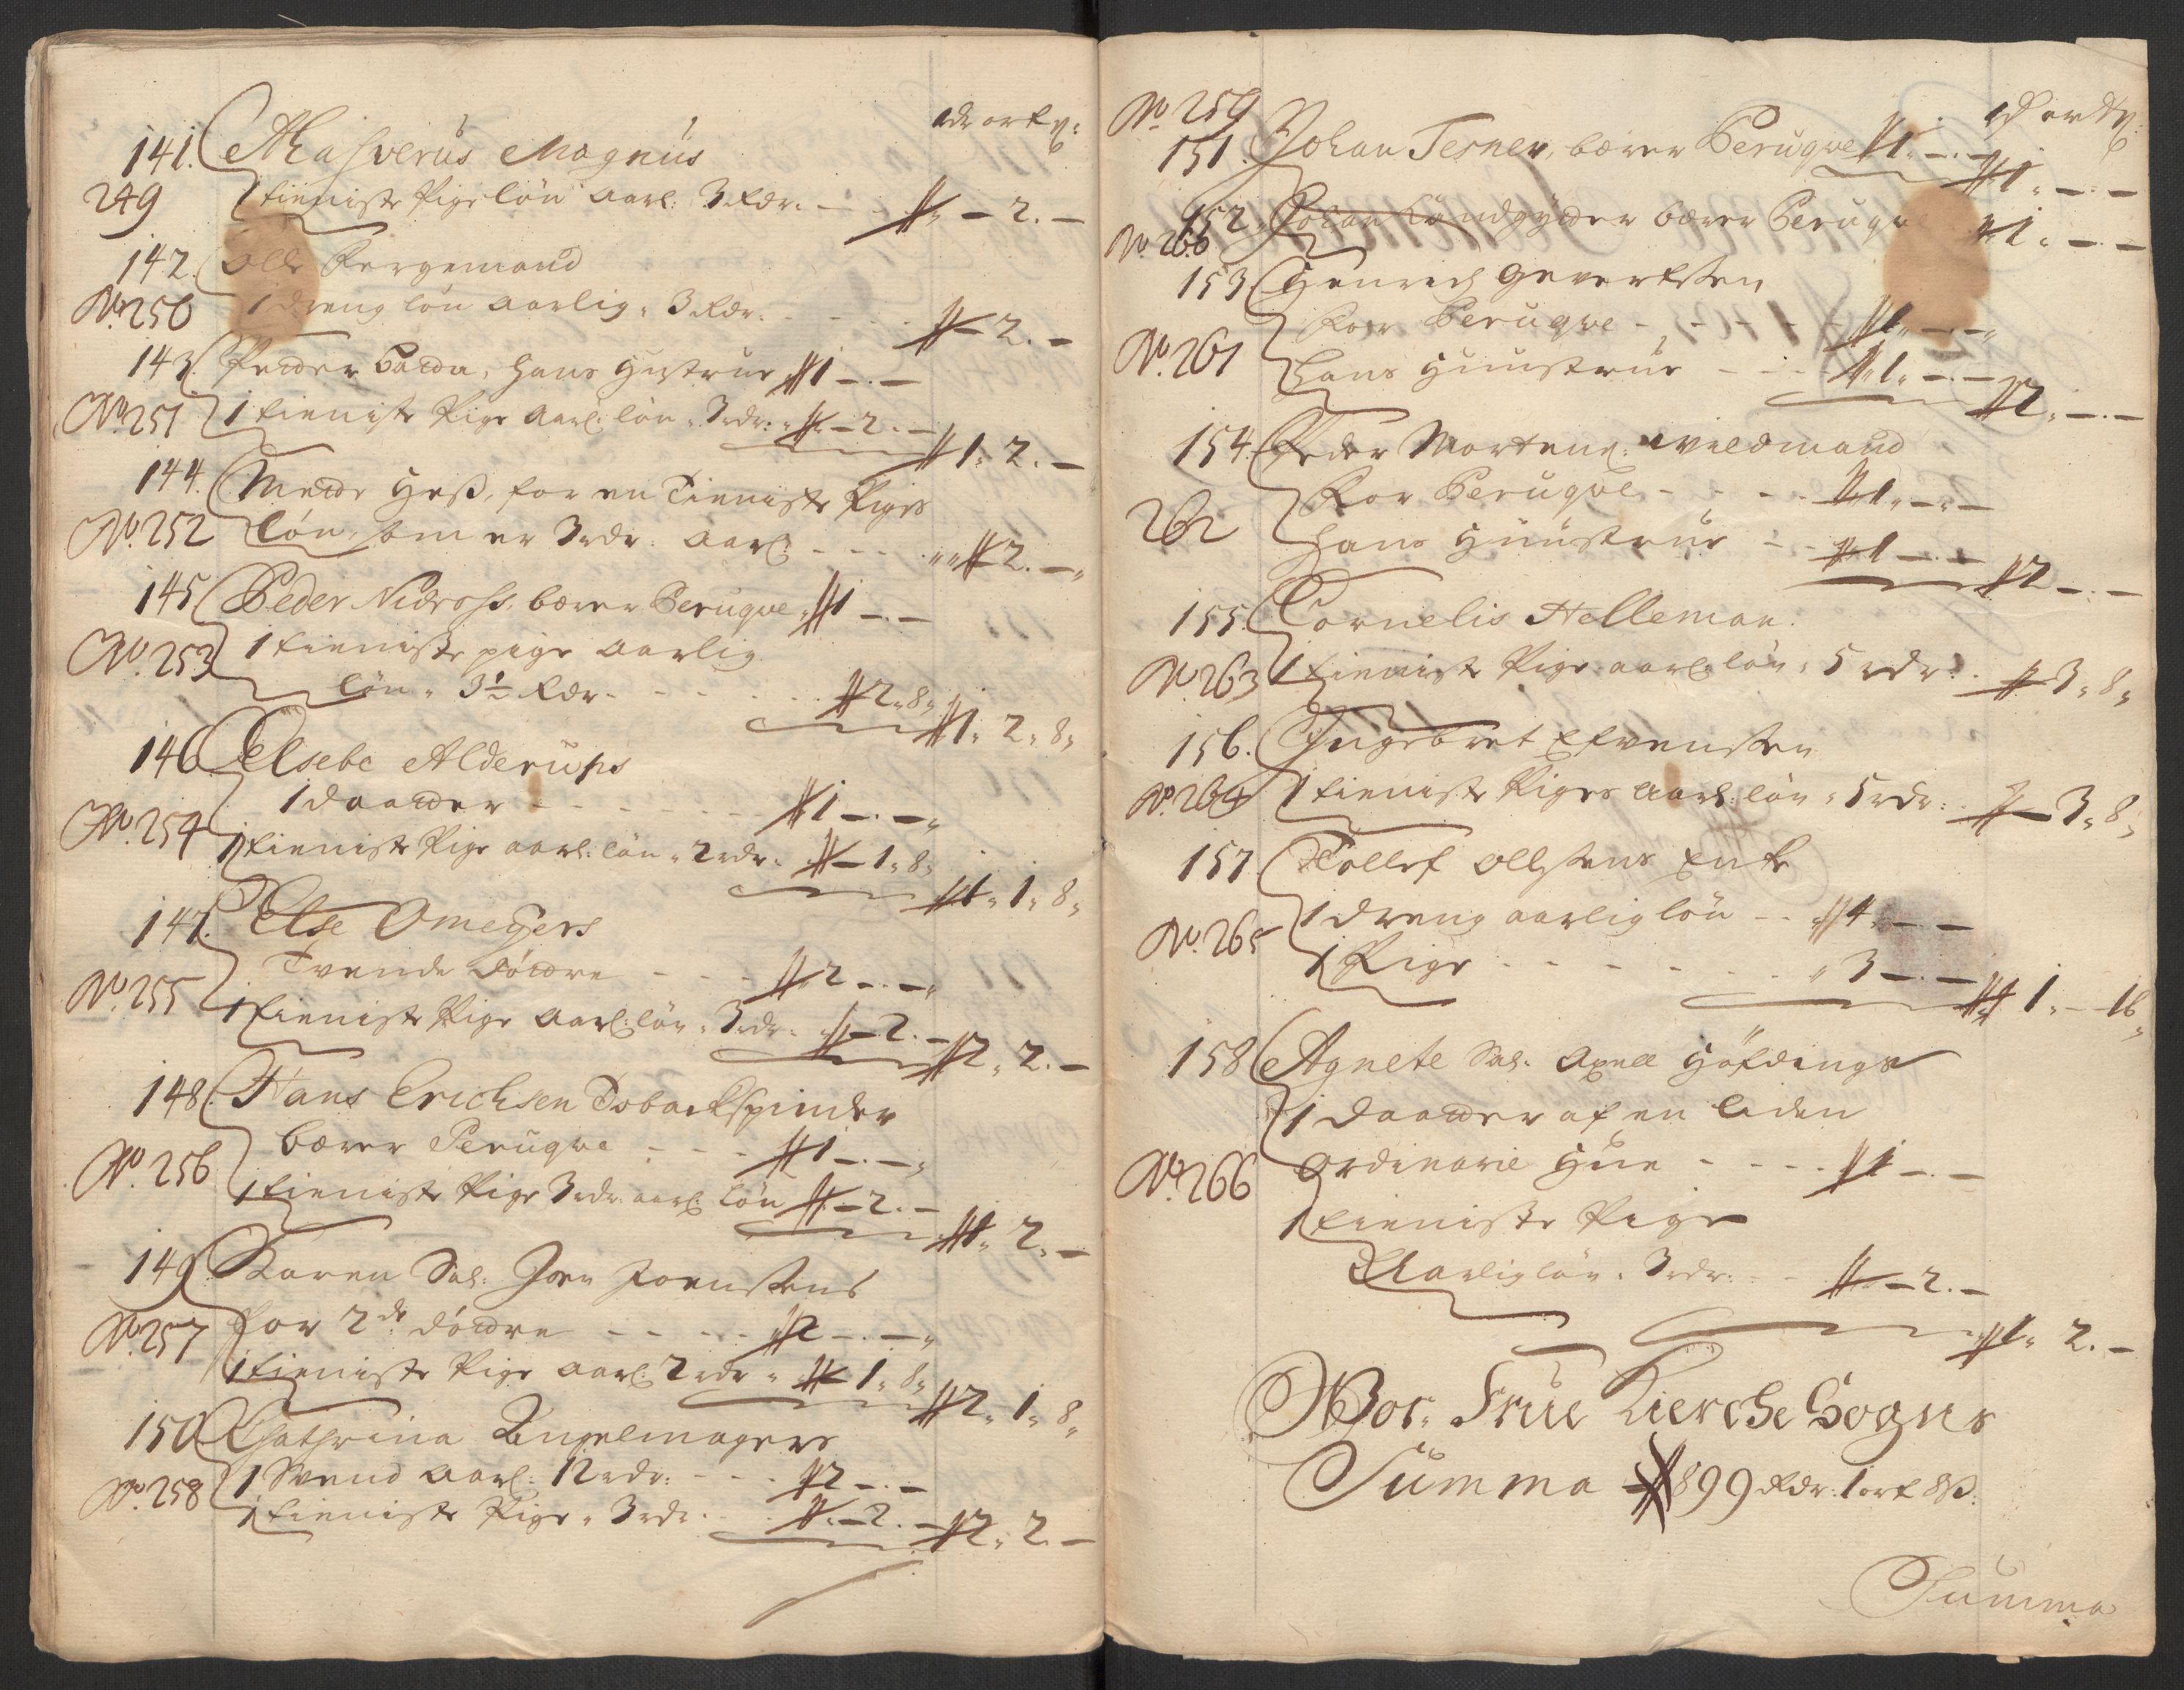 rdr ort ß:
141. Ahasverus Magnus
249 1 tieniste Pige løn aarl: 3 Rdr. - - # - 2. -
142. Olle Bergemand
No. 250 1 dreng løn aarlig, 3 Rdr. - - - # - 2. -
143. Peder hans Hustrue # 1 -.-
No. 251 1 tieniste Pige aarl: løn, 3 rdr: # - 2. -
# 1. 2. -
144. Hess, for en Tieniste Piges
No. 252 løn, som er 3 rdr. aarl: - - - # 2. -
145 Peder Nidross, bærer Peruqve # 1 -.-
No. 253 1 tieniste pige aarlig
løn, 3½ Rdr. - - - # 2. 8.
# 1. 2. 8.
146 Elsebe Alderups
1 daatter - - - # 1 -.-
No. 254 1 tieniste Pige aarl: løn, 2 rdr. # - 1. 8.
# 1. 1. 8.
147. Else Omeyers
Tvende døttre - - - # 2 -.-
No. 255 1 tieniste Pige aarl: løn, 3 rdr. # - 2. -
# 2. 2. -
148. Hans Erichsen Tobackspinder
bærer Peruqve - - - # 1 -.-
No. 256 1 tieniste Pige 3 rdr. aarl: løn # - 2. -
# 1. 2. -
149. Karen Sal: Joen Joensens
No. 257 for 2de døttre - - - # 2 -.-
1 tieniste Pige aarl: 2 rdr # 1. 8.
# 2. 1. 8.
150 Chathrina
1 Svend aarl: 12 rdr: - - - # 2 -.-
No. 258 1 tieniste Pige, 3 rdr. - # - 2. -
# 2. 2. -
rd ort ß:
No. 259
151. Johan Tesner, bærer Peruqve # 1. -.-
# 1. -.-
152. Johan bærer Peruqve # 1. -.-
No. 260
153 Henrich Gevertsen
for Peruqve - - - # 1. -.-
No. 261 hans Huustrue - - - # 1. -.-
# 2. -.-
154. Peder Mortens:
for Peruqve - - - # 1. -.-
262 hans Huustrue - - # 1 -.-
# 2 -.-
155. Cornelis Helleman.
No. 263 1 tieniste Pige aarl: løn, 5 rdr: # 3. 8.
156. Ingebret Efvensen
No. 264 1 tieniste Piges aarl: løn, 5 rdr: - # 3. 8.
157. Tollef Ollsens Enke
1 dreng aarlig løn - - # 4. -.-
No. 265 1 Pige - - - 3 -.-
# 1. - 16.
158 Agnete Sal: Axell Höfdings
1 daatter af en liden
ordinarie Hue - - - # 1 -.-
No. 266 1 tieniste Pige
Aarlig løn, 3 rdr: - - # - 2. -
# 1. 2. -
Vor. Frue Kierche Sogns
Summa # 899 Rdr. 1 ort 8ß.
Summa